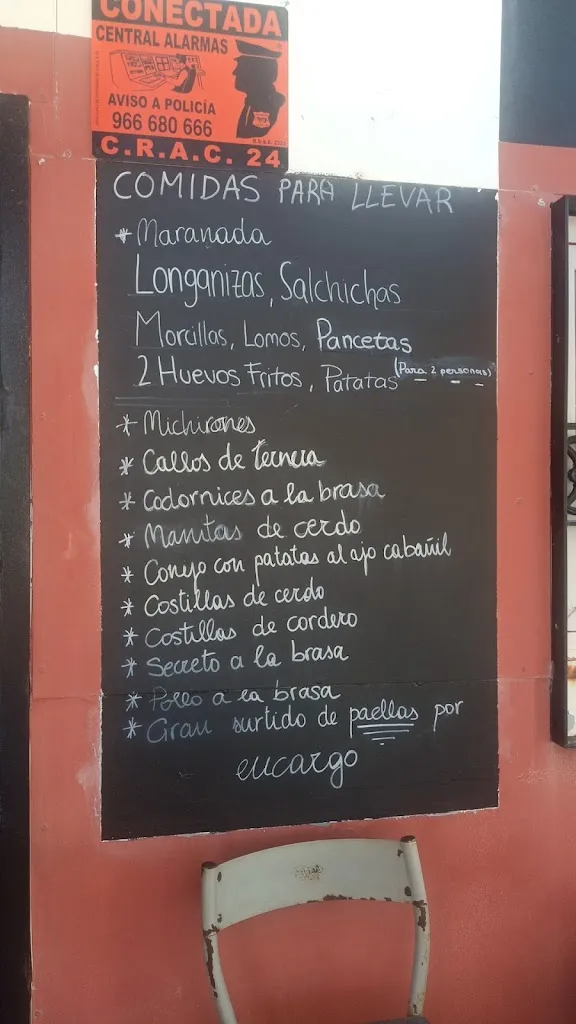 CONECTADA
CENTRAL ALARMAS
AVISO A POLICÍA
966 680 666
C.R.A.C. 24
COMIDAS PARA LLEVAR
* Maranada
Longanizas, Salchichas
Morcillas, Lomos, Pancetas
2 Huevos Fritos, Patatas (Para 2 personas)
* Michirones
* Callos de ternera
* Codornices a la brasa
* Manitas de cerdo
* Conejo con patatas al ajo cabañil
* Costillas de cerdo
* Costillas de cordero
* Secreto a la brasa
* Pollo a la brasa
* Gran surtido de paellas por
encargo